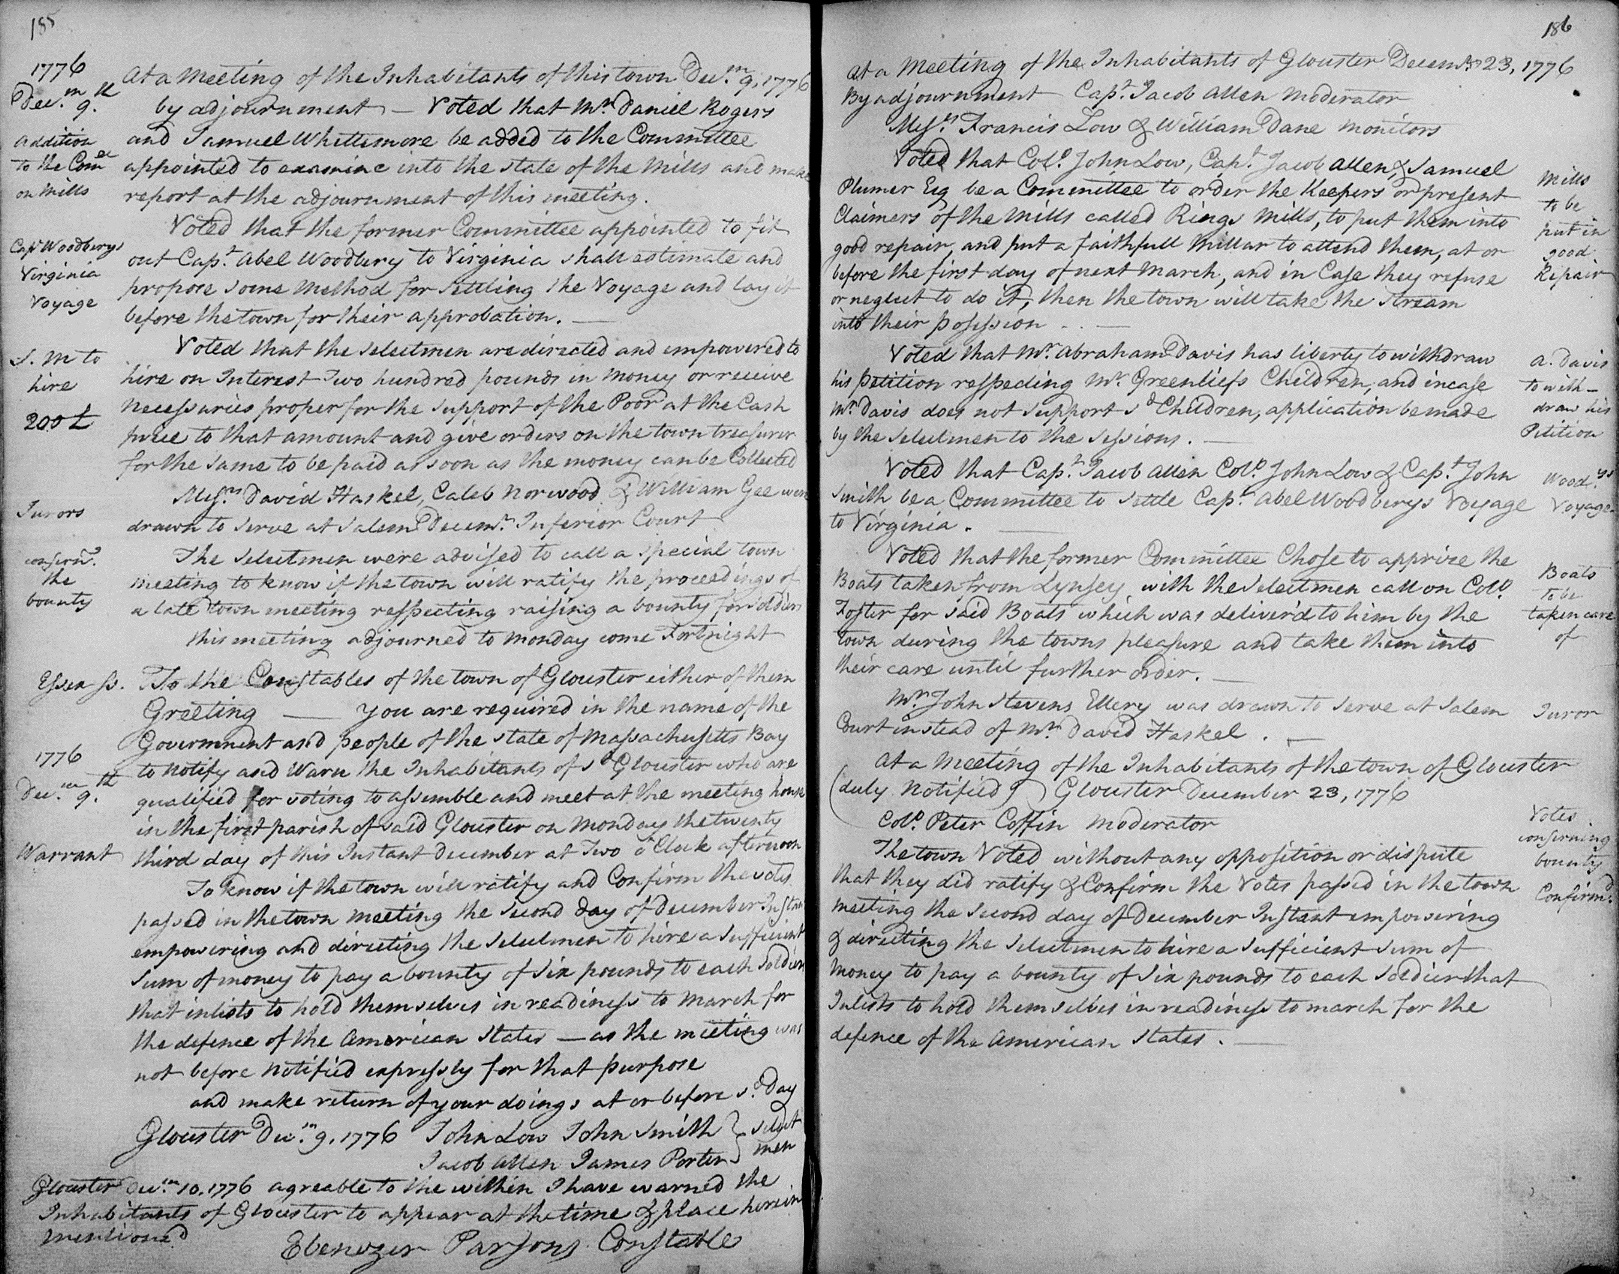 185
1776
Decm 9th
At a Meeting of the Inhabitants of this town Decm 9, 1776
by adjournment — Voted that Mr Daniel Rogers
Addition
to the Comee
on Mills
and Samuel Whittemore be added to the Committee
appointed to examine into the state of the Mills and make
report at the adjournment of this meeting.
Capt Woodberys
Virginia
Voyage
Voted that the former Committee appointed to fit
out Capt. Abel Woodbery to Virginia shall estimate and
propose some Method for settling the Voyage and lay it
before the town for their approbation. —
S. M to
hire
200 £
Voted that the selectmen are directed and empowered to
hire on Interest Two hundred pounds in money or receive
Necessaries proper for the support of the Poor at the Cash
price to that amount and give orders on the town treasurer
for the same to be paid as soon as the money can be Collected
Jurors
Messrs David Haskel, Caleb Norwood & William Gee were
drawn to serve at Salem Decemr Inferior Court
confirmg
the
bounty
The selectmen were advised to call a special town
meeting to know if the town will ratify the proceedings of
a late town meeting respecting raising a bounty for soldiers
this meeting adjourned to Monday come Fortnight
Essex ss. To the Constables of the town of Glouster either of them
Greeting — You are required in the name of the
1776
Decm 9th
Government and people of the state of Massachusetts Bay
to Notify and Warn the Inhabitants of sd Glouster who are
qualified for voting to assemble and meet at the meeting house
in the first parish of said Glouster on Monday the twenty
Warrant
third day of this Instant December at Two o'Clock afternoon
To know if the town will ratify and Confirm the votes
passed in the town meeting the second day of December Instant
empowering and directing the selectmen to hire a sufficient
sum of money to pay a bounty of six pounds to each soldier
that inlists to hold themselves in readiness to march for
the defence of the American States — as the meeting was
not before Notified expressly for that purpose
and make return of your doings at or before sd Day
Glouster Decm 9, 1776 John Low John Smith } Select
Jacob Allen James Porter } men
Glouster Decm 10, 1776 agreable to the within I have warned the
Inhabitants of Glouster to appear at the time & place herein
mentioned
Ebenezer Parsons Constable
186
At a Meeting of the Inhabitants of Glouster Decemr 23, 1776
By adjournment Capt. Jacob Allen Moderator
Messrs Francis Low & William Dane monitors
Mills
to be
put in
good
Repair
Voted that Colo John Low, Capt Jacob Allen, & Samuel
Plumer Esq be a Committee to order the Keepers or present
Claimers of the Mills called Rings Mills, to put them into
good repair, and put a faithfull Millar to attend them, at or
before the first day of next March, and in Case they refuse
or neglect to do it, then the town will take the stream
into their possession . . —
A. Davis
to with-
draw his
Petition
Voted that Mr Abraham Davis has liberty to withdraw
his petition respecting Mr Greenliefs Children, and incase
Mr Davis does not support sd Children, application be made
by the selectmen to the sessions. —
Wood.ys
Voyage
Voted that Capt Jacob Allen Colo John Low & Capt John
Smith be a Committee to settle Capt Abel Woodberys Voyage
to Virginia. —
Boats
to be
taken care
of
Voted that the former Committee Chose to apprize the
Boats taken from Lynsey with the selectmen call on Colo
Foster for said Boats which was deliver'd to him by the
town during the towns pleasure and take them into
their care until further order. —
Juror
Mr John Stevens Ellery was drawn to serve at Salem
Court instead of Mr David Haskel . —
At a Meeting of the Inhabitants of the town of Glouster
(duly Notified) Glouster December 23, 1776
Colo Peter Coffin Moderator
Votes
confirming
bounty
Confirmd
The town Voted without any opposition or dispute
that they did ratify & Confirm the Votes passed in the town
meeting the second day of December Instant empowering
& directing the selectmen to hire a sufficient sum of
money to pay a bounty of six pounds to each soldier that
Inlists to hold themselves in readiness to march for the
defence of the American States . —